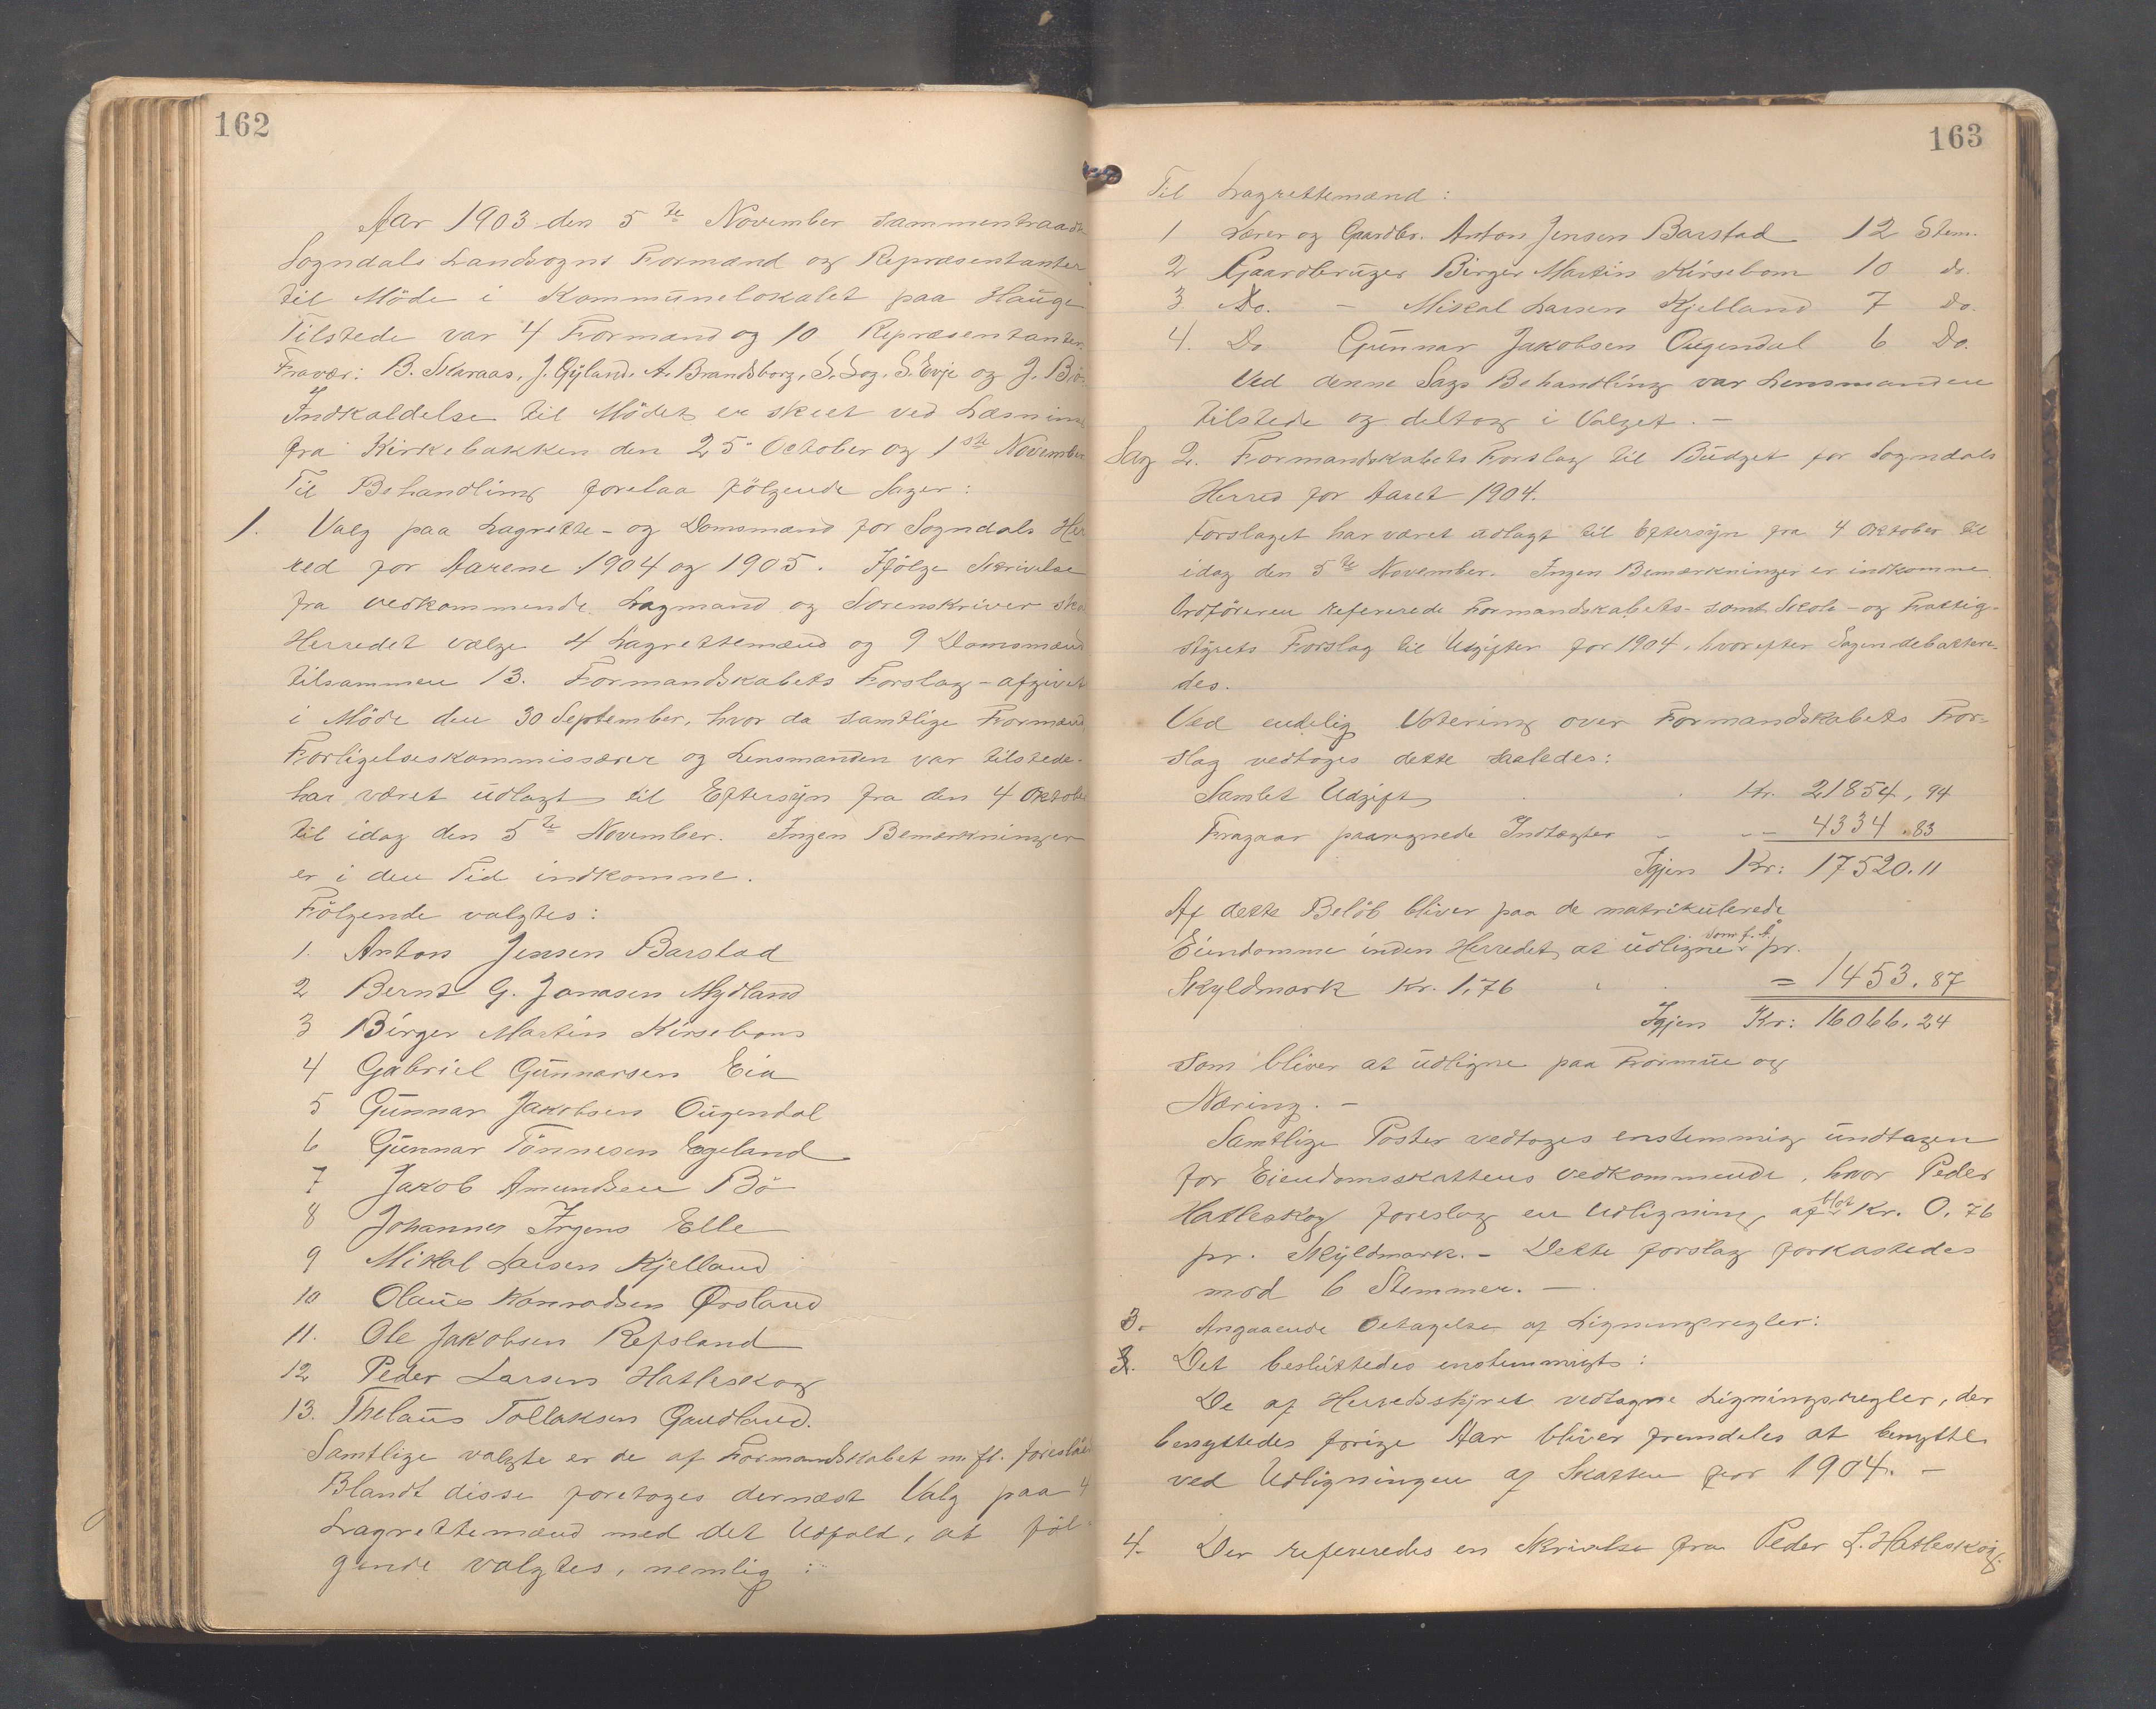 162
Aar 1903 den 5te November sammentraadte
Sogndals Landsogns Formænd og Repræsentanter
til Möde i Kommunelokalet paa Hauge
Tilstede var 4 Formænd og 10 Repræsentanter.
Fravær: B. Skaraas, J. Gyland, A. Brandsborg, S. Log, S. Evje og J. Bö.
Indkaldelse til Mödet er skeet ved Læsning
fra Kirkebakken den 25. October og 1ste November
Til Behandling forelaa fölgende Sager:
1. Valg paa Lagrette- og Domsmænd for Sogndals Her
red for Aarene 1904 og 1905. Ifölge Skrivelse
fra vedkommende Lagmand og Sorenskriver skal
Herredet vælge 4 Lagrettemænd og 9 Domsmænd
tilsammen 13. Formandskabets Forslag - afgivet
i Möde den 30 September, hvor da samtlige Formænd,
Forligelseskommissærer og Lensmanden var tilstede -
har været udlagt til Eftersyn fra den 4 Oktober
til idag den 5te November. Ingen Bemærkninger
er i den Tid indkomne.
Fölgende valgtes:
1. Anton Jensen Barstad
2 Bernt G. Jonasen Mydland
3 Birger Martin Kirsebom
4 Gabriel Gunnarsen Eia
5 Gunnar Jakobsen Ougendal
6 Gunnar Tönnesen Egeland
7 Jakob Amundsen Bö
8 Johannes Irgens Elle
9 Mikal Larsen Kjelland
10 Olaus Konradsen Ørsland
11. Ole Jakobsen Refsland
12 Peder Larsen Hatleskog
13. Thelaus Tollaksen Gaudland.
Samtlige valgte er de af Formandskabet m. fl. foreslået
Blandt disse foretoges dernæst Valg paa 4
Lagrettemænd med det Udfald, at föl-
gende valgtes, nemlig:
163
Til Lagrettemænd:
1 Lærer og Gaardbr. Anton Jensen Barstad 12 Stem.
2 Gaardbruger Birger Martin Kirsebom 10 do.
3. Do. - Mikal Larsen Kjelland 7 Do.
4. Do Gunnar Jakobsen Ougendal 6 Do.
Ved denne Sags Behandling var Lensmanden
tilstede og deltog i Valget. -
Sag 2. Formandskabets Forslag til Budget for Sogndals
Herred for Aaret 1904.
Forslaget har været udlagt til Eftersyn fra 4 Oktober til
idag den 5te November. Ingen Bemærkninger er indkomne.
Ordföreren refererede Formandskabets- samt Skole- og Fattig-
styrets Forslag til Udgifter for 1904, hvorefter Sagen debattere-
des.
Ved endelig Votering over Formandskabets For-
slag vedtoges dette saaledes:
Samlet Udgift Kr. 21854,94
Fragaar paaregnede Indtægter - -- 4334.83
Igjen Kr: 17520.11
Af dette Belöb bliver paa de matrikulerede
Eiendomme inden Herredet at udligne som f. A. pr.
Skyldmark Kr. 1,76 = 1453.87
Igjen Kr: 16066.24
som bliver at udligne paa Formue og
Næring. -
Samtlige Poster vedtoges enstemmig undtagen
for Eiendomsskattens vedkommende, hvor Peder
Hatleskog foreslog en Udligning af blot Kr. 0,76
pr. Skyldmark. - Dette forslag forkastedes
mod 6 Stemmer. -
3. Angaaende Vedtagelse af Ligningsregler:
Det besluttedes enstemmigt:
De af Herredsstyret vedtagne Ligningsregler, der
benyttedes forige Aar bliver fremdeles at benytte
ved Udligningen af Skatten for 1904. -
4. Der refereredes en Skrivelse fra Peder L. Hatleskog: